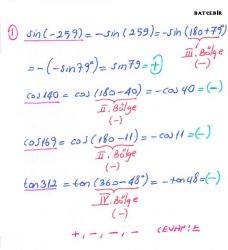 BAYCEBİR
① sin(-259) = -sin(259) = -sin(180+79°)
III. Bölge
(-)
= -(-sin79°) = sin79 = +
cos140 = cos(180-40) = -cos40 = (-)
II. Bölge
(-)
cos169 = cos(180-11) = -cos11 = (-)
II. Bölge
(-)
tan312 = tan(360-48°) = -tan48 = (-)
IV. Bölge
(-)
+, -, -, - CEVAP E